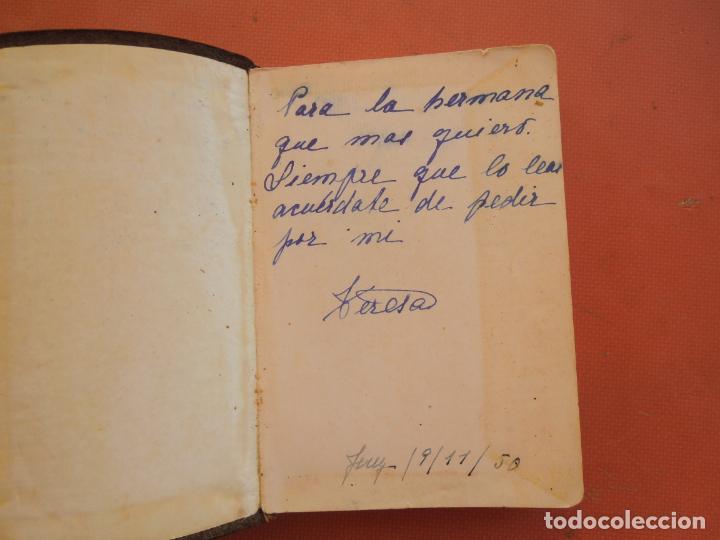 Para la hermana
que mas quiero.
Siempre que lo leas
acuérdate de pedir
por mi
Teresa
/9/11/50
todocoleccion.net